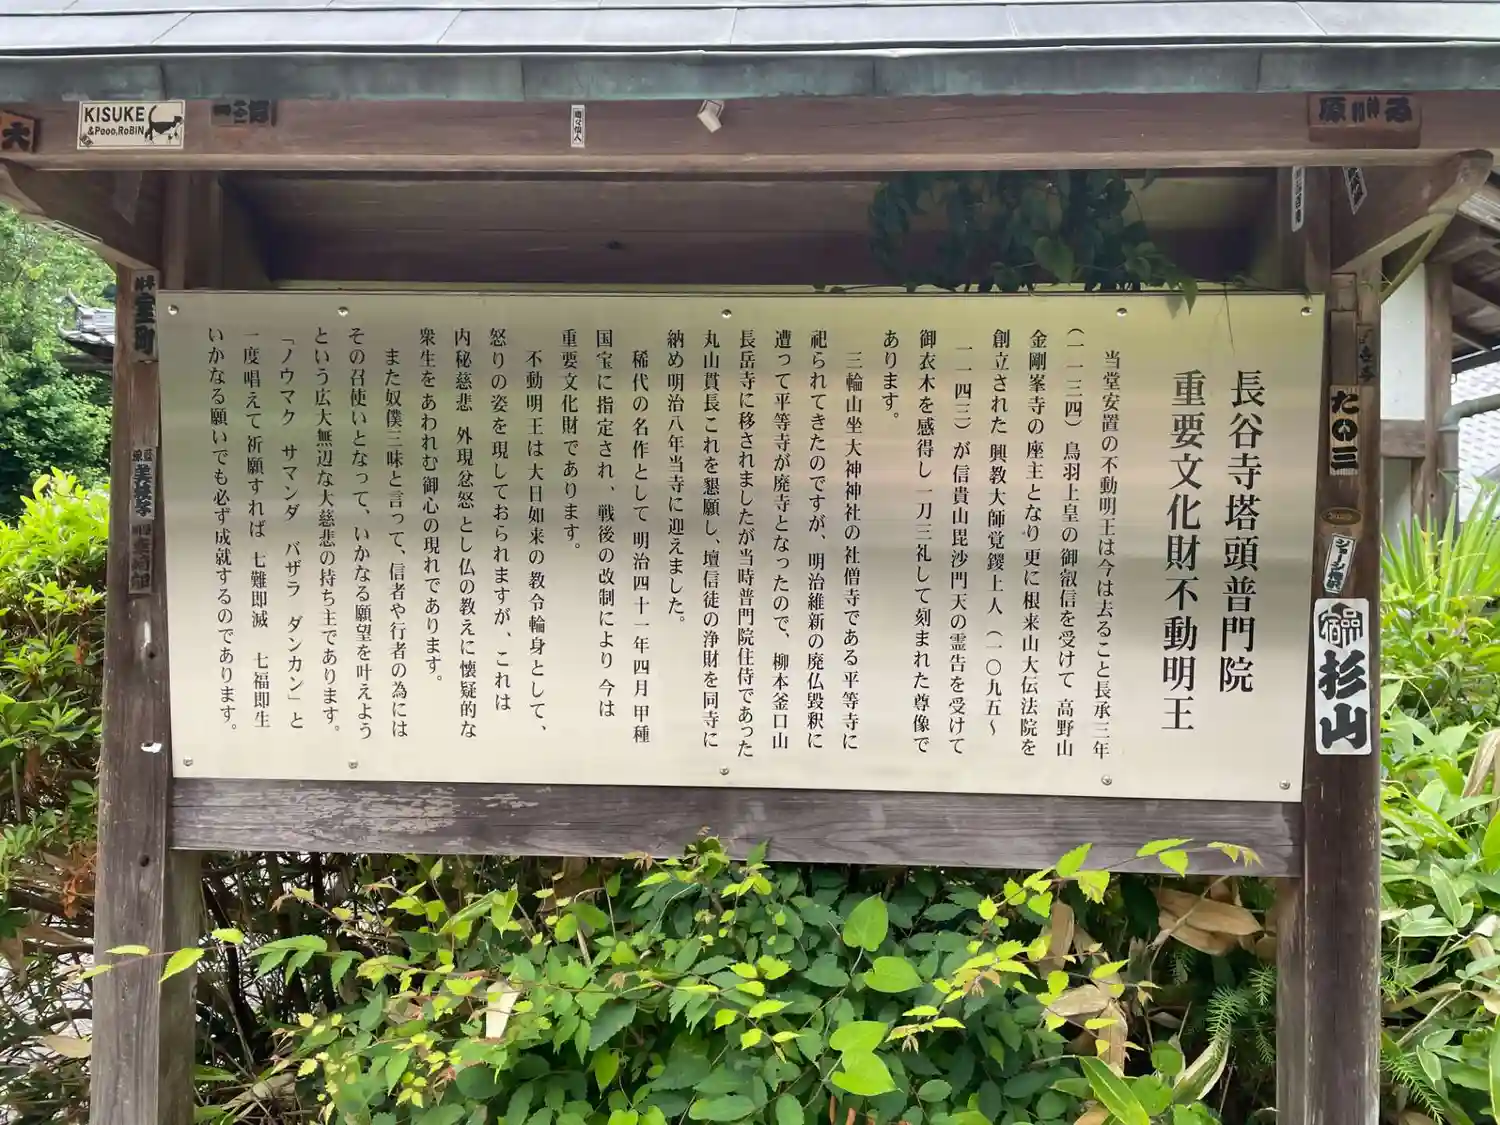 長谷寺塔頭普門院
重要文化財不動明王
当堂安置の不動明王は今は去ること長承三年
（一一三四）鳥羽上皇の御叡信を受けて 高野山
金剛峯寺の座主となり更に根来山大伝法院を
創立された 興教大師覚鑁上人（一〇九五～
一一四三）が信貴山毘沙門天の霊告を受けて
御衣木を感得し 一刀三礼して刻まれた尊像で
あります。
三輪山坐大神神社の社僧寺である平等寺に
祀られてきたのですが、明治維新の廃仏毀釈に
遭って平等寺が廃寺となったので、柳本釜口山
長岳寺に移されましたが当時普門院住侍であった
丸山貫長これを懇願し、壇信徒の浄財を同寺に
納め明治八年当寺に迎えました。
稀代の名作として 明治四十一年四月 甲種
国宝に指定され、戦後の改制により 今は
重要文化財であります。
不動明王は大日如来の教令輪身として、
怒りの姿を現しておられますが、これは
内秘慈悲 外現忿怒 とし仏の教えに懐疑的な
衆生をあわれむ御心の現れであります。
また奴僕三昧と言って、信者や行者の為には
その召使いとなって、いかなる願望を叶えよう
という広大無辺な大慈悲の持ち主であります。
「ノウマク サマンダ バザラ ダンカン」と
一度唱えて祈願すれば 七難即滅 七福即生
いかなる願いでも必ず成就するのであります。
KISUKE
&Pooo,RoBiN
大
室町
た〇三
杉山